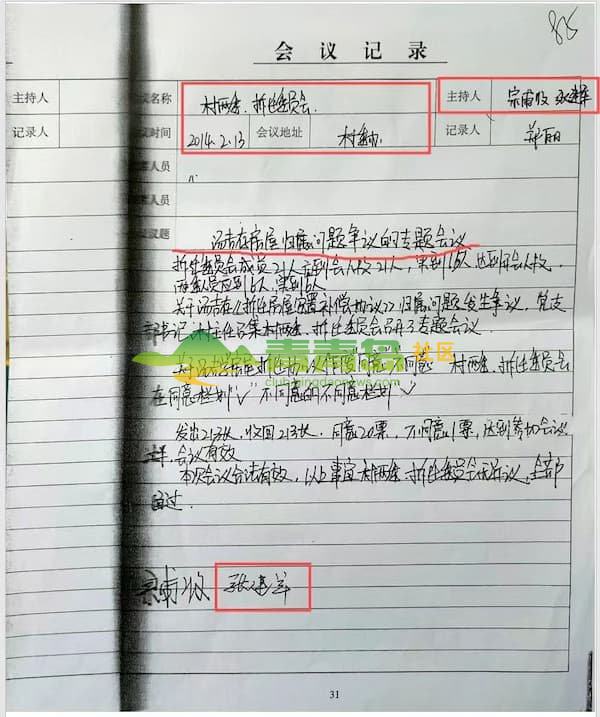 815
会 议 记 录
主持人 议名称 村两委.拆迁委员会. 主持人
记录人 议时间 2014.2.13 会议地址 村委办 记录人 郑丽
人员
议题 房屋归属问题争议的专题会议
拆迁委员会成员21人应到会人数21人，实到 人，达到开会人数.
两委人员应到6人，实到6人
拆迁房屋安置补偿协议》归属问题发生争议，党支
部书记、村主任召集村两委、拆迁委员会召开了专题会议.
村两委、拆迁委员会
在同意栏划"√" 不同意的不同意栏划"√"
青青岛社区
club.qingdaonews.com
发出21张，收回21张，同意20票，不同意1票，达到参加会议
会议有效
本次会议合法有效，以上事宜村两委、拆迁委员会无异议，全部
通过.
31